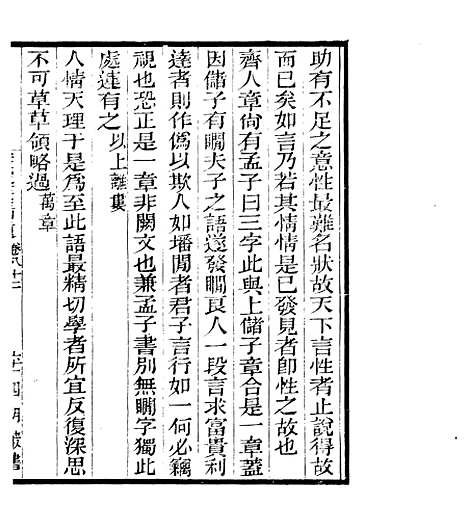 助有不足之意性最難名狀故天下言性者止說得故
而已矣如言乃若其情情是已發見者卽性之故也
齊人章尙有孟子曰三字此與上儲子章合是一章蓋
因儲子有瞷夫子之語遂發瞷良人一段言求富貴利
達者則作僞以欺人如墦閒者君子言行如一何必竊
視也恐正是一章非闕文也兼孟子書別無瞷字獨此
處連有之以上離婁
人情天理于是爲至此語最精切學者所宜反復深思
不可草草領略過萬章